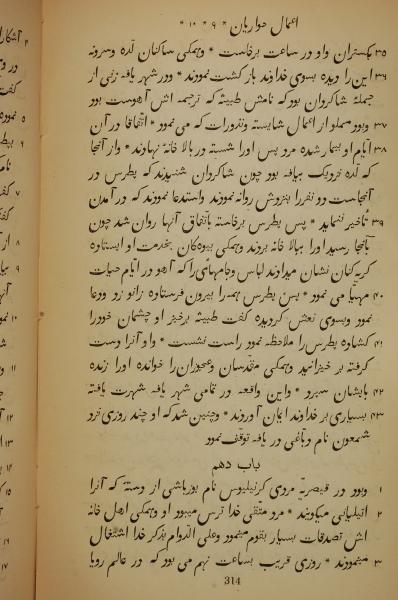 اعمال حواریان * ۹ * ۱۰ *
۳۵ بگستران واو در ساعت برخاست * وهمگی ساکنان لده وسرونه
۳۶ این را دیده بسوی خداوند باز گشت نمودند * ودر شهر یافه زنی از
جملهٔ شاکردان بود که نامش طبیثه که ترجمه اش آهوست بود
۳۷ وبود مملو از اعمال شایسته وتذورات که می نمود * اتفاقا در آن
۳۸ ایام او بیمار شده مرد پس اورا شسته در بالا خانهٔ نهادند * واز آنجا
که لده نزدیک بیافه بود چون شاکردان شنیدند که پطرس در
آنجاست دو نفر را بنزدش روانه نمودند واستدعا نمودند که در آمدن
۳۹ تأخیر ننماید * پس پطرس برخاسته باتفاق آنها روان شد چون
بآنجا رسید اورا ببالا خانه بردند وهمگی بیوه‌کان بخدمت او ایستاده
گریه کنان نشان میدادند لباس وجامهائی را که آهو در ایام حیات
۴۰ مهیا می نمود * پس پطرس همه را بیرون فرستاده زانو زد ودعا
نمود وبسوی نعش گردیده گفت طبیثه برخیز او چشمان خودرا
۴۱ کشاده پطرس را ملاحظه نموده راست نشست * واو آنرا دست
گرفته بر خیزانید وهمگی مقدسان وعجوزان را خوانده اورا زنده
۴۲ بایشان سپرد * واین واقعه در تمامی شهر یافه شهرت یافته
۴۳ بسیاری بر خداوند ایمان آوردند * وچنین شد که او چند روزی نزد
شمعون نام دباغی در یافه توقف نمود
باب دهم
۱ وبود در قیصریه مردی کرنیلیوس نام یوزباشی از دسته که آنرا
۲ اتیلیانی میگویند * مرد متقی خدا ترس میبود او وهمگی اهل خانه
اش تصدقات بسیار بقوم مینمود وعلی الدوام بذکر خدا اشتغال
۳ مینمودند * روزی قریب بساعت نهم می بود که در عالم رویا
314